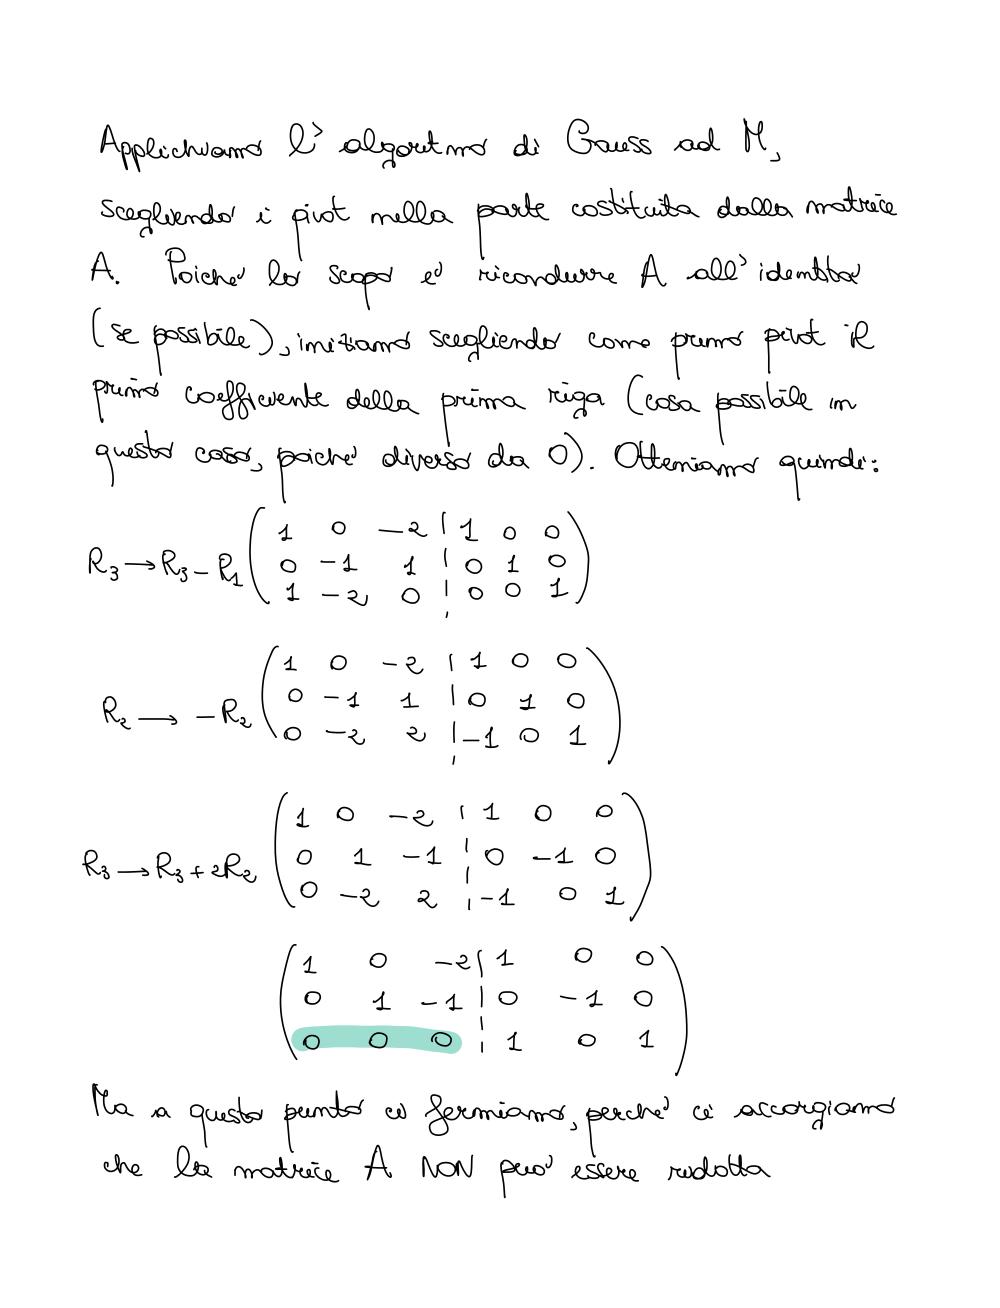 Applichiamo l'algoritmo di Gauss ad M,
scegliendo i pivot nella parte costituita dalla matrice
A. Poiché lo scopo è ricondurre A all'identità
(se possibile), iniziamo scegliendo come primo pivot il
primo coefficiente della prima riga (cosa possibile in
questo caso, poiché diverso da 0). Otteniamo quindi:
1 0 -2 | 1 0 0
R₃ → R₃ - R₁ 0 -1 1 | 0 1 0
1 -2 0 | 0 0 1
1 0 -2 | 1 0 0
R₂ → -R₂ 0 -1 1 | 0 1 0
0 -2 2 | -1 0 1
1 0 -2 | 1 0 0
R₃ → R₃ + 2R₂ 0 1 -1 | 0 -1 0
0 -2 2 | -1 0 1
1 0 -2 | 1 0 0
0 1 -1 | 0 -1 0
0 0 0 | 1 0 1
Ma a questo punto ci fermiamo, perché ci accorgiamo
che la matrice A NON può essere ridotta